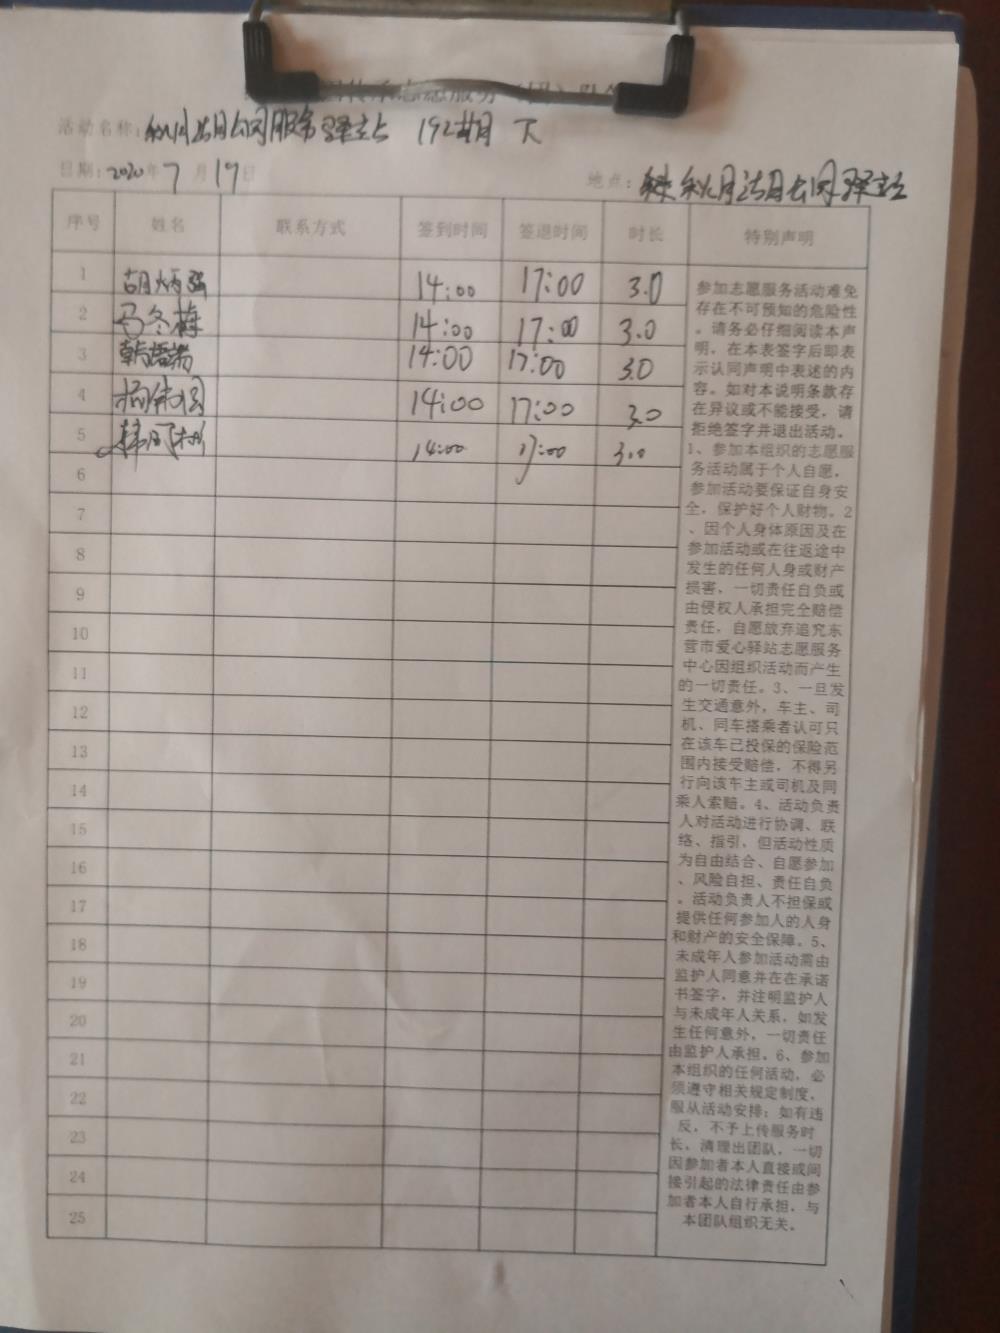 传承志愿服务（团）队
活动名称： 公园服务驿站 192期 下
日期：2020年7月19日
地点： 公园驿站
序号 姓名 联系方式 签到时间 签退时间 时长 特别声明
1 胡炳强 14:00 17:00 3.0
2 马冬梅 14:00 17:00 3.0
3 韩 14:00 17:00 3.0
4 杨 14:00 17:00 3.0
5 韩 14:00 17:00 3.0
6
7
8
9
10
11
12
13
14
15
16
17
18
19
20
21
22
23
24
25
参加志愿服务活动难免
存在不可预知的危险性
。请务必仔细阅读本声
明，在本表签字后即表
示认同声明中表述的内
容。如对本说明条款存
在异议或不能接受，请
拒绝签字并退出活动。
1、参加本组织的志愿服
务活动属于个人自愿，
参加活动要保证自身安
全，保护好个人财物。2
、因个人身体原因及在
参加活动或在往返途中
发生的任何人身或财产
损害，一切责任自负或
由侵权人承担完全赔偿
责任，自愿放弃追究东
营市爱心驿站志愿服务
中心因组织活动而产生
的一切责任。3、一旦发
生交通意外，车主、司
机、同车搭乘者认可只
在该车已投保的保险范
围内接受赔偿，不得另
行向该车主或司机及同
乘人索赔。4、活动负责
人对活动进行协调、联
络、指引，但活动性质
为自由结合、自愿参加
、风险自担、责任自负
。活动负责人不担保或
提供任何参加人的人身
和财产的安全保障。5、
未成年人参加活动需由
监护人同意并在在承诺
书签字，并注明监护人
与未成年人关系，如发
生任何意外，一切责任
由监护人承担。6、参加
本组织的任何活动，必
须遵守相关规定制度，
服从活动安排；如有违
反，不予上传服务时
长，清理出团队，一切
因参加者本人直接或间
接引起的法律责任由参
加者本人自行承担，与
本团队组织无关。